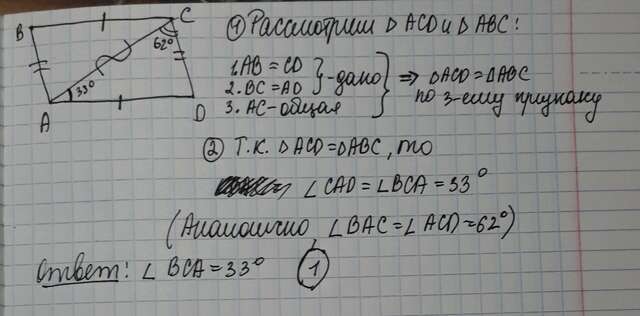 B C
62°
33°
A D
① Рассмотрим Δ ACD и Δ ABC:
1. AB = CD
2. BC = AD } - дано } ⇒ ΔACD = ΔABC
3. AC - общая по 3-ему признаку
② Т.к. ΔACD = ΔABC, то
∠CAD = ∠BCA = 33°
(Аналогично ∠BAC = ∠ACD = 62°)
Ответ: ∠ BCA = 33° ①